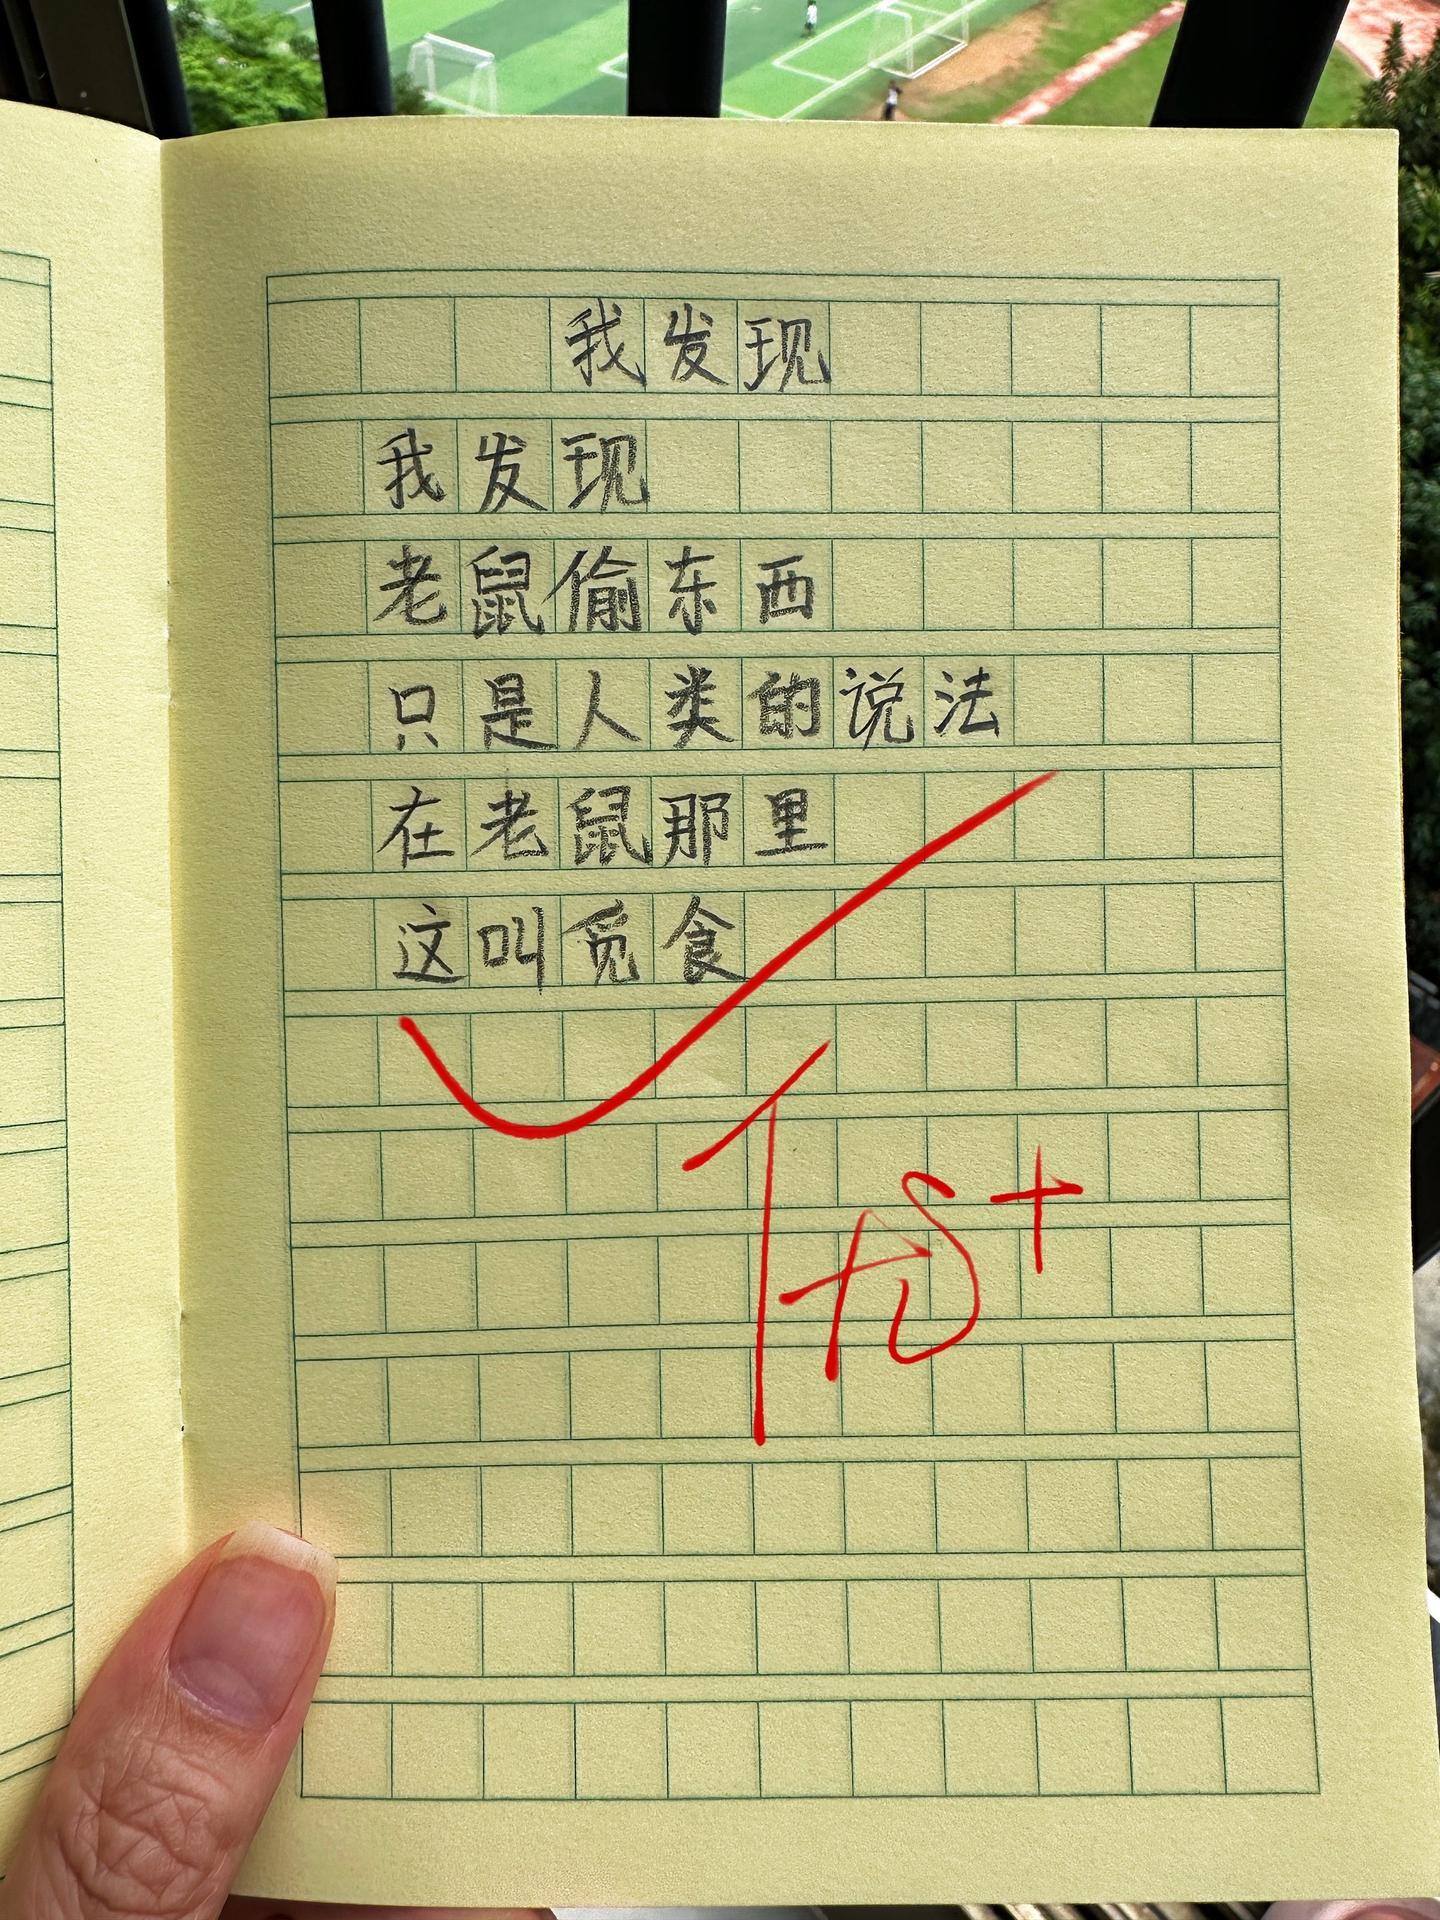 我发现
我发现
老鼠偷东西
只是人类的说法
在老鼠那里
这叫觅食
优+